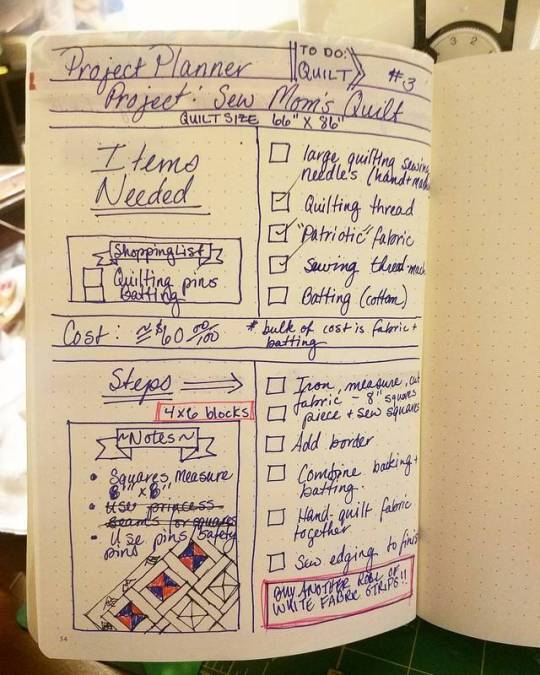 Project Planner
TO DO:
QUILT
#3
Project: Sew Mom's Quilt
QUILT SIZE 66" X 86"
Items
Needed
large quilting sewing
needle's (hand +
Quilting thread
"Patriotic" fabric
Sewing thread
Batting (cotton)
Shopping List
Quilting pins
Batting
Cost: ≈ $60 00/100
* bulk of cost is fabric +
batting
Steps
4x6 blocks
Iron, measure, cut
fabric - 8" squares
piece + sew squares
Add border
Combine backing +
batting.
Hand-quilt fabric
together
Sew edging to finish
BUY ANOTHER ROLL OF
WHITE FABRIC STRIPS!!
~Notes~
• Squares measure
8" x 8"
• Use princess
seams for squares
• Use pins safety
pins
54
3 2